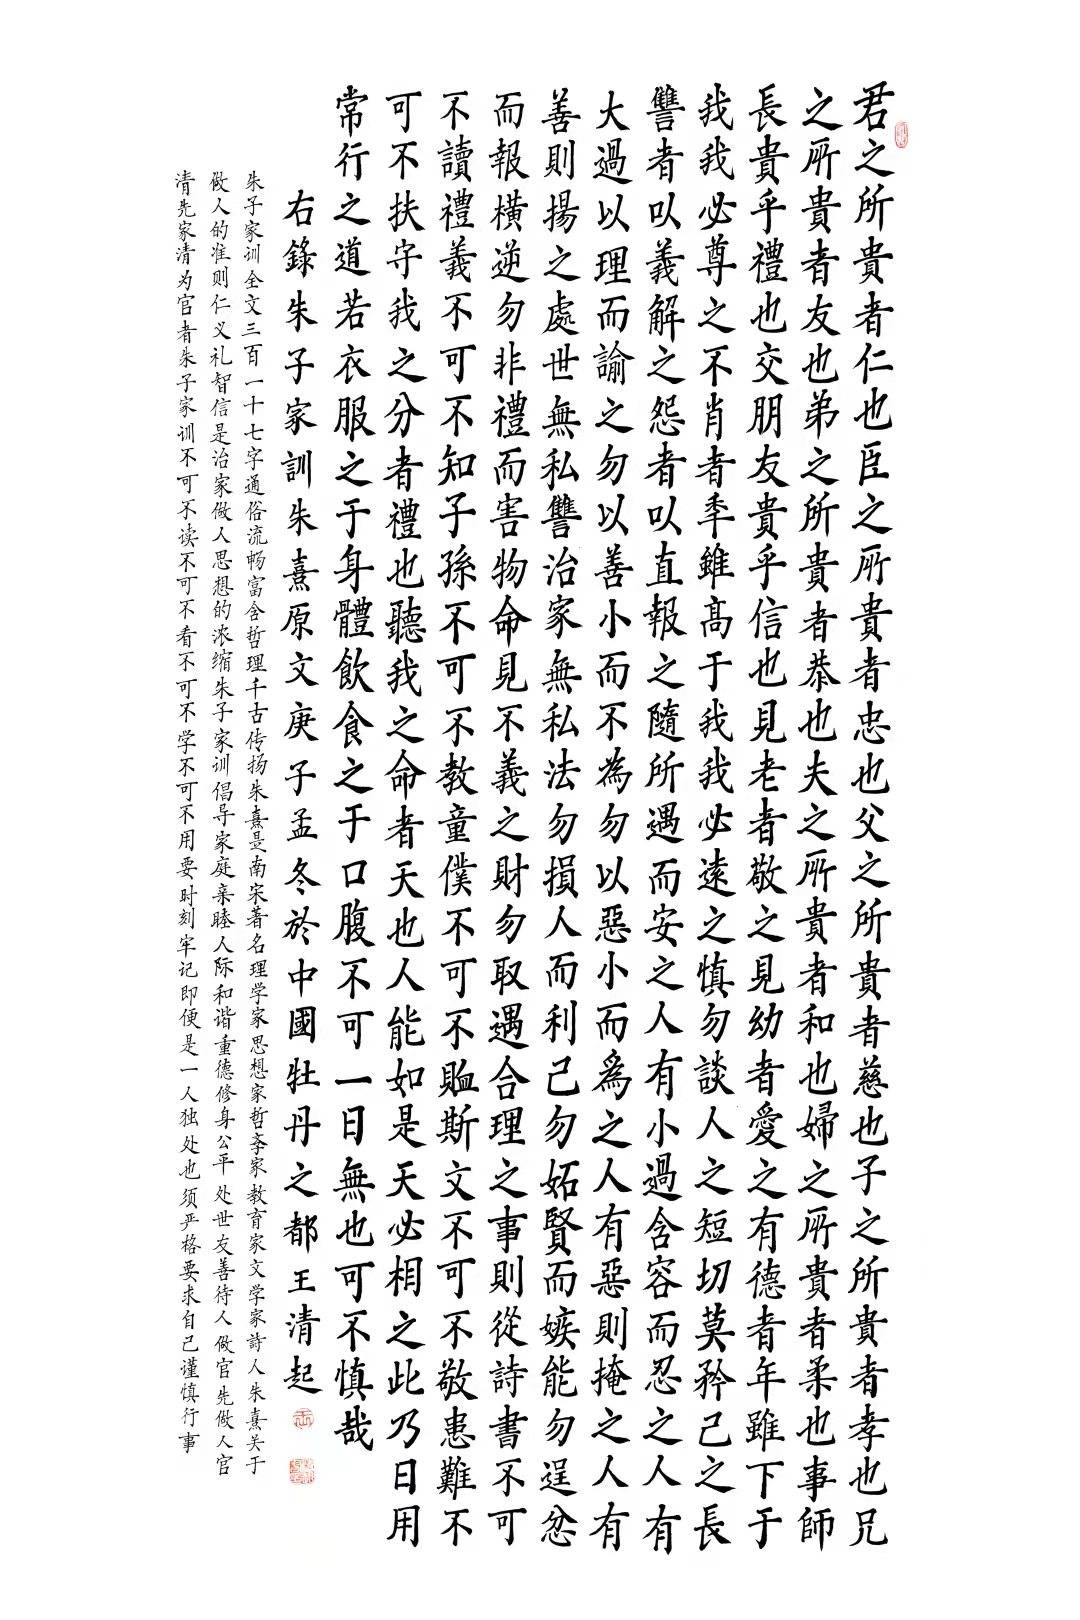 君之所貴者仁也臣之所貴者忠也父之所貴者慈也子之所貴者孝也兄
之所貴者友也弟之所貴者恭也夫之所貴者和也婦之所貴者柔也事師
長貴乎禮也交朋友貴乎信也見老者敬之見幼者愛之有德者年雖下于
我我必尊之不肖者秊雖高于我我必遠之慎勿談人之短切莫矜己之長
讐者以義解之怨者以直報之隨所遇而安之人有小過含容而忍之人有
大過以理而諭之勿以善小而不為勿以惡小而為之人有惡則掩之人有
善則揚之處世無私讐治家無私法勿損人而利己勿妬賢而嫉能勿逞忿
而報橫逆勿非禮而害物命見不義之財勿取遇合理之事則從詩書不可
不讀禮義不可不知子孫不可不教童僕不可不賉斯文不可不敬患難不
可不扶守我之分者禮也聽我之命者天也人能如是天必相之此乃日用
常行之道若衣服之于身體飲食之于口腹不可一日無也可不慎哉
右錄朱子家訓朱熹原文庚子孟冬於中國牡丹之都王清起
朱子家训全文三百一十七字通俗流畅富含哲理千古传扬朱熹是南宋著名理学家思想家哲学家教育家文学家詩人朱熹关于
做人的准则仁义礼智信是治家做人思想的浓缩朱子家训倡导家庭亲睦人际和谐重德修身公平处世友善待人做官先做人官
清先家清为官者朱子家训不可不读不可不看不可不学不可不用要时刻牢记即便是一人独处也须严格要求自己谨慎行事